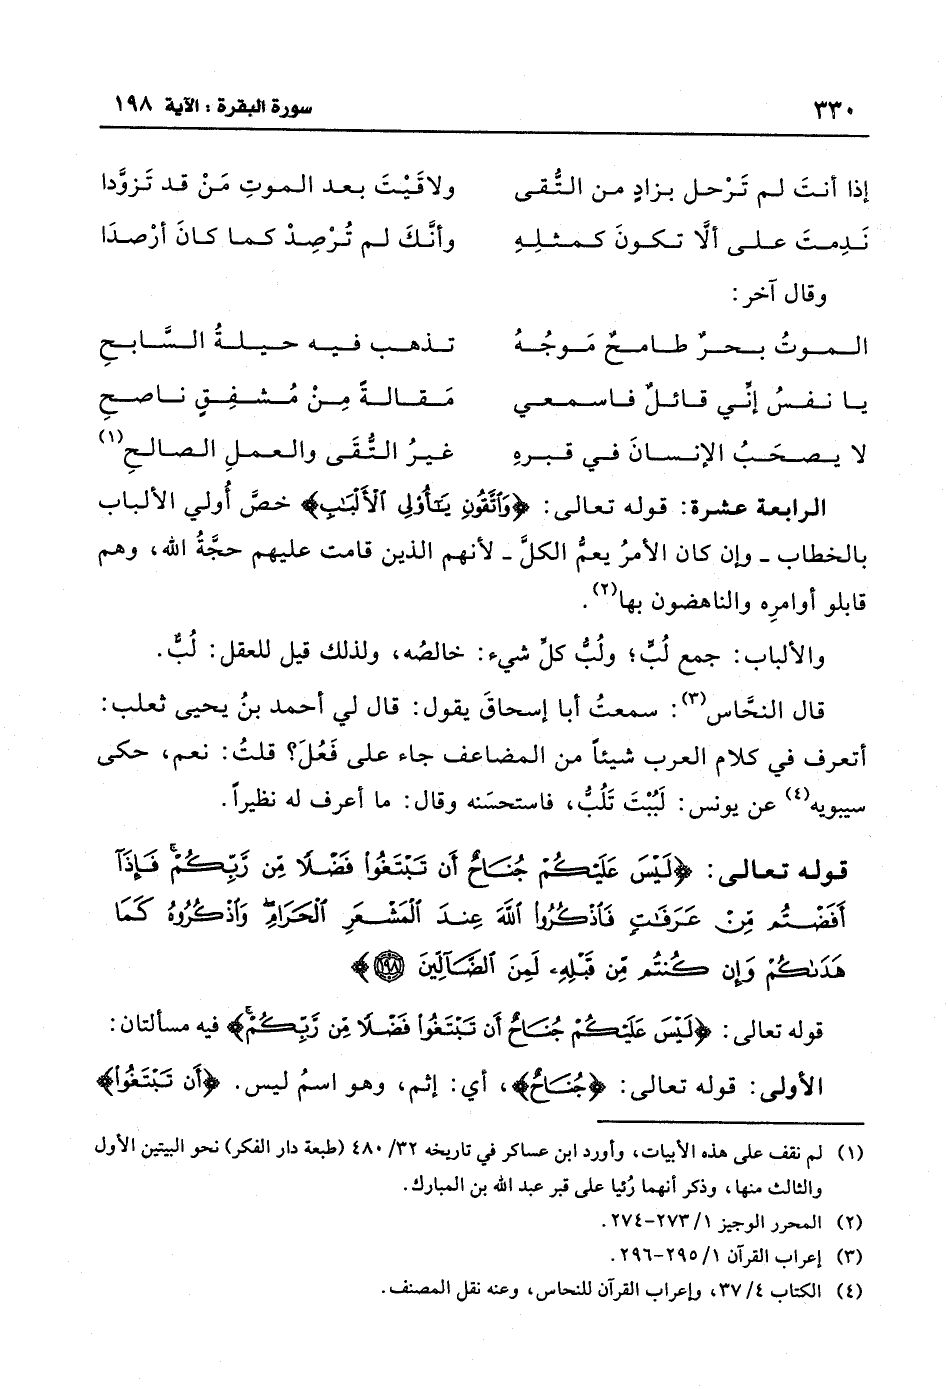 ٣٣٠ سورة البقرة : الآية ١٩٨
إذا أنتَ لم تَرْحل بزادٍ من التُّقى ولاقَيْتَ بعد الموتِ مَنْ قد تَزوَّدا
نَدِمتَ على ألَّا تكونَ كمثلِهِ وأنَّكَ لم تُرْصِدْ كما كانَ أرْصدَا
وقال آخر:
الموتُ بحرٌ طامحٌ مَوجُهُ تذهب فيه حيلةُ السَّابحِ
يا نفسُ إنِّي قائلٌ فاسمعي مَقالةً مِنْ مُشفِقٍ ناصحِ
لا يصحَبُ الإنسانَ في قبرهِ غيرُ التُّقَى والعملِ الصالحِ(١)
الرابعة عشرة: قوله تعالى: ﴿وَٱتَّقُونِ يَٰٓأُولِي ٱلْأَلْبَٰبِ﴾ خصَّ أُولي الألباب
بالخطاب ـ وإن كان الأمرُ يعمُّ الكلَّ ـ لأنهم الذين قامت عليهم حجَّةُ الله، وهم
قابلو أوامرِه والناهضون بها(٢).
والألباب: جمع لُبٍّ؛ ولُبُّ كلِّ شيء: خالصُه، ولذلك قيل للعقل: لُبٌّ.
قال النحَّاس(٣): سمعتُ أبا إسحاقَ يقول: قال لي أحمد بنُ يحيى ثعلب:
أتعرف في كلام العرب شيئاً من المضاعف جاء على فَعُلَ؟ قلتُ: نعم، حكى
سيبويه(٤) عن يونس: لَبُبْتَ تَلُبُّ، فاستحسَنه وقال: ما أعرف له نظيراً.
قوله تعالى: ﴿لَيْسَ عَلَيْكُمْ جُنَاحٌ أَن تَبْتَغُوا۟ فَضْلًا مِّن رَّبِّكُمْ ۚ فَإِذَآ
أَفَضْتُم مِّنْ عَرَفَٰتٍ فَٱذْكُرُوا۟ ٱللَّهَ عِندَ ٱلْمَشْعَرِ ٱلْحَرَامِ ۖ وَٱذْكُرُوهُ كَمَا
هَدَىٰكُمْ وَإِن كُنتُم مِّن قَبْلِهِۦ لَمِنَ ٱلضَّآلِّينَ ١٩٨﴾
قوله تعالى: ﴿لَيْسَ عَلَيْكُمْ جُنَاحٌ أَن تَبْتَغُوا۟ فَضْلًا مِّن رَّبِّكُمْ ۚ﴾ فيه مسألتان:
الأولى: قوله تعالى: ﴿جُنَاحٌ﴾، أي: إثم، وهو اسمُ ليس. ﴿أَن تَبْتَغُوا۟﴾
(١) لم نقف على هذه الأبيات، وأورد ابن عساكر في تاريخه ٣٢/ ٤٨٠ (طبعة دار الفكر) نحو البيتين الأول
والثالث منها، وذكر أنهما رُئيا على قبر عبد الله بن المبارك.
(٢) المحرر الوجيز ١/ ٢٧٣-٢٧٤.
(٣) إعراب القرآن ١/ ٢٩٥-٢٩٦.
(٤) الكتاب ٤/ ٣٧، وإعراب القرآن للنحاس، وعنه نقل المصنف.